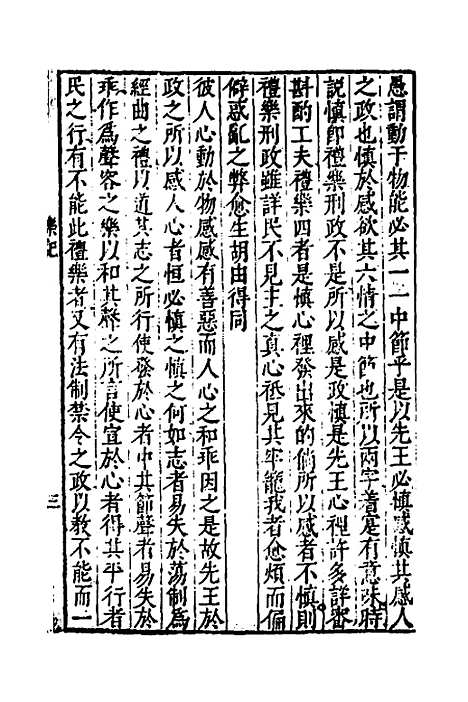 愚謂動于物能必其一一中節乎是以先王必慎感慎其感人
之政也慎於感欲其六情之中節也所以兩字着定有意味時
說慎即禮樂刑政不是所以感是政慎是先王心裡許多詳審
斟酌工夫禮樂四者是慎心裡發出來的倘所以感者不慎則
禮樂刑政雖詳民不見王之真心祗見其牢籠我者愈煩而偏
僻惑亂之弊愈生胡由得同
彼人心動於物感感有善惡而人心之和乖因之是故先王於
政之所以感人心者恒必慎之慎之何如志者易失於蕩制為
經曲之禮以道其志之所行使發於心者中其節聲者易失於
乖作為聲容之樂以和其聲之所言使宣於心者得其平行者
民之行有不能此禮樂者又有法制禁令之政以教不能而一
樂記
三